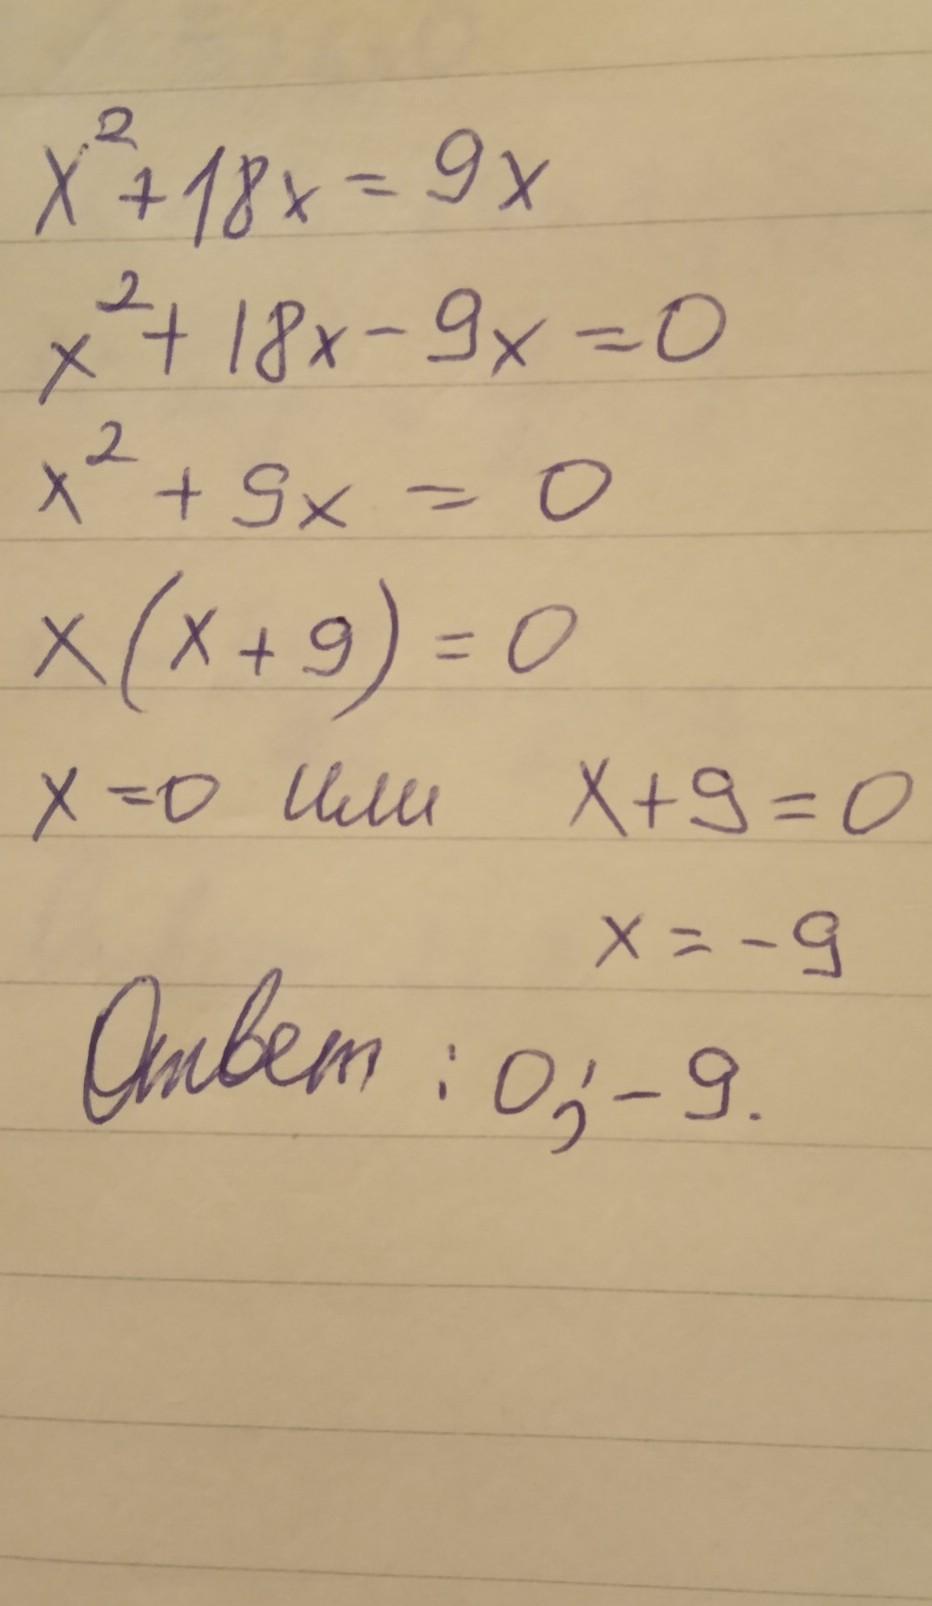 x² + 18x = 9x
x² + 18x - 9x = 0
x² + 9x = 0
x(x + 9) = 0
x = 0 или x + 9 = 0
x = -9
Ответ: 0; -9.